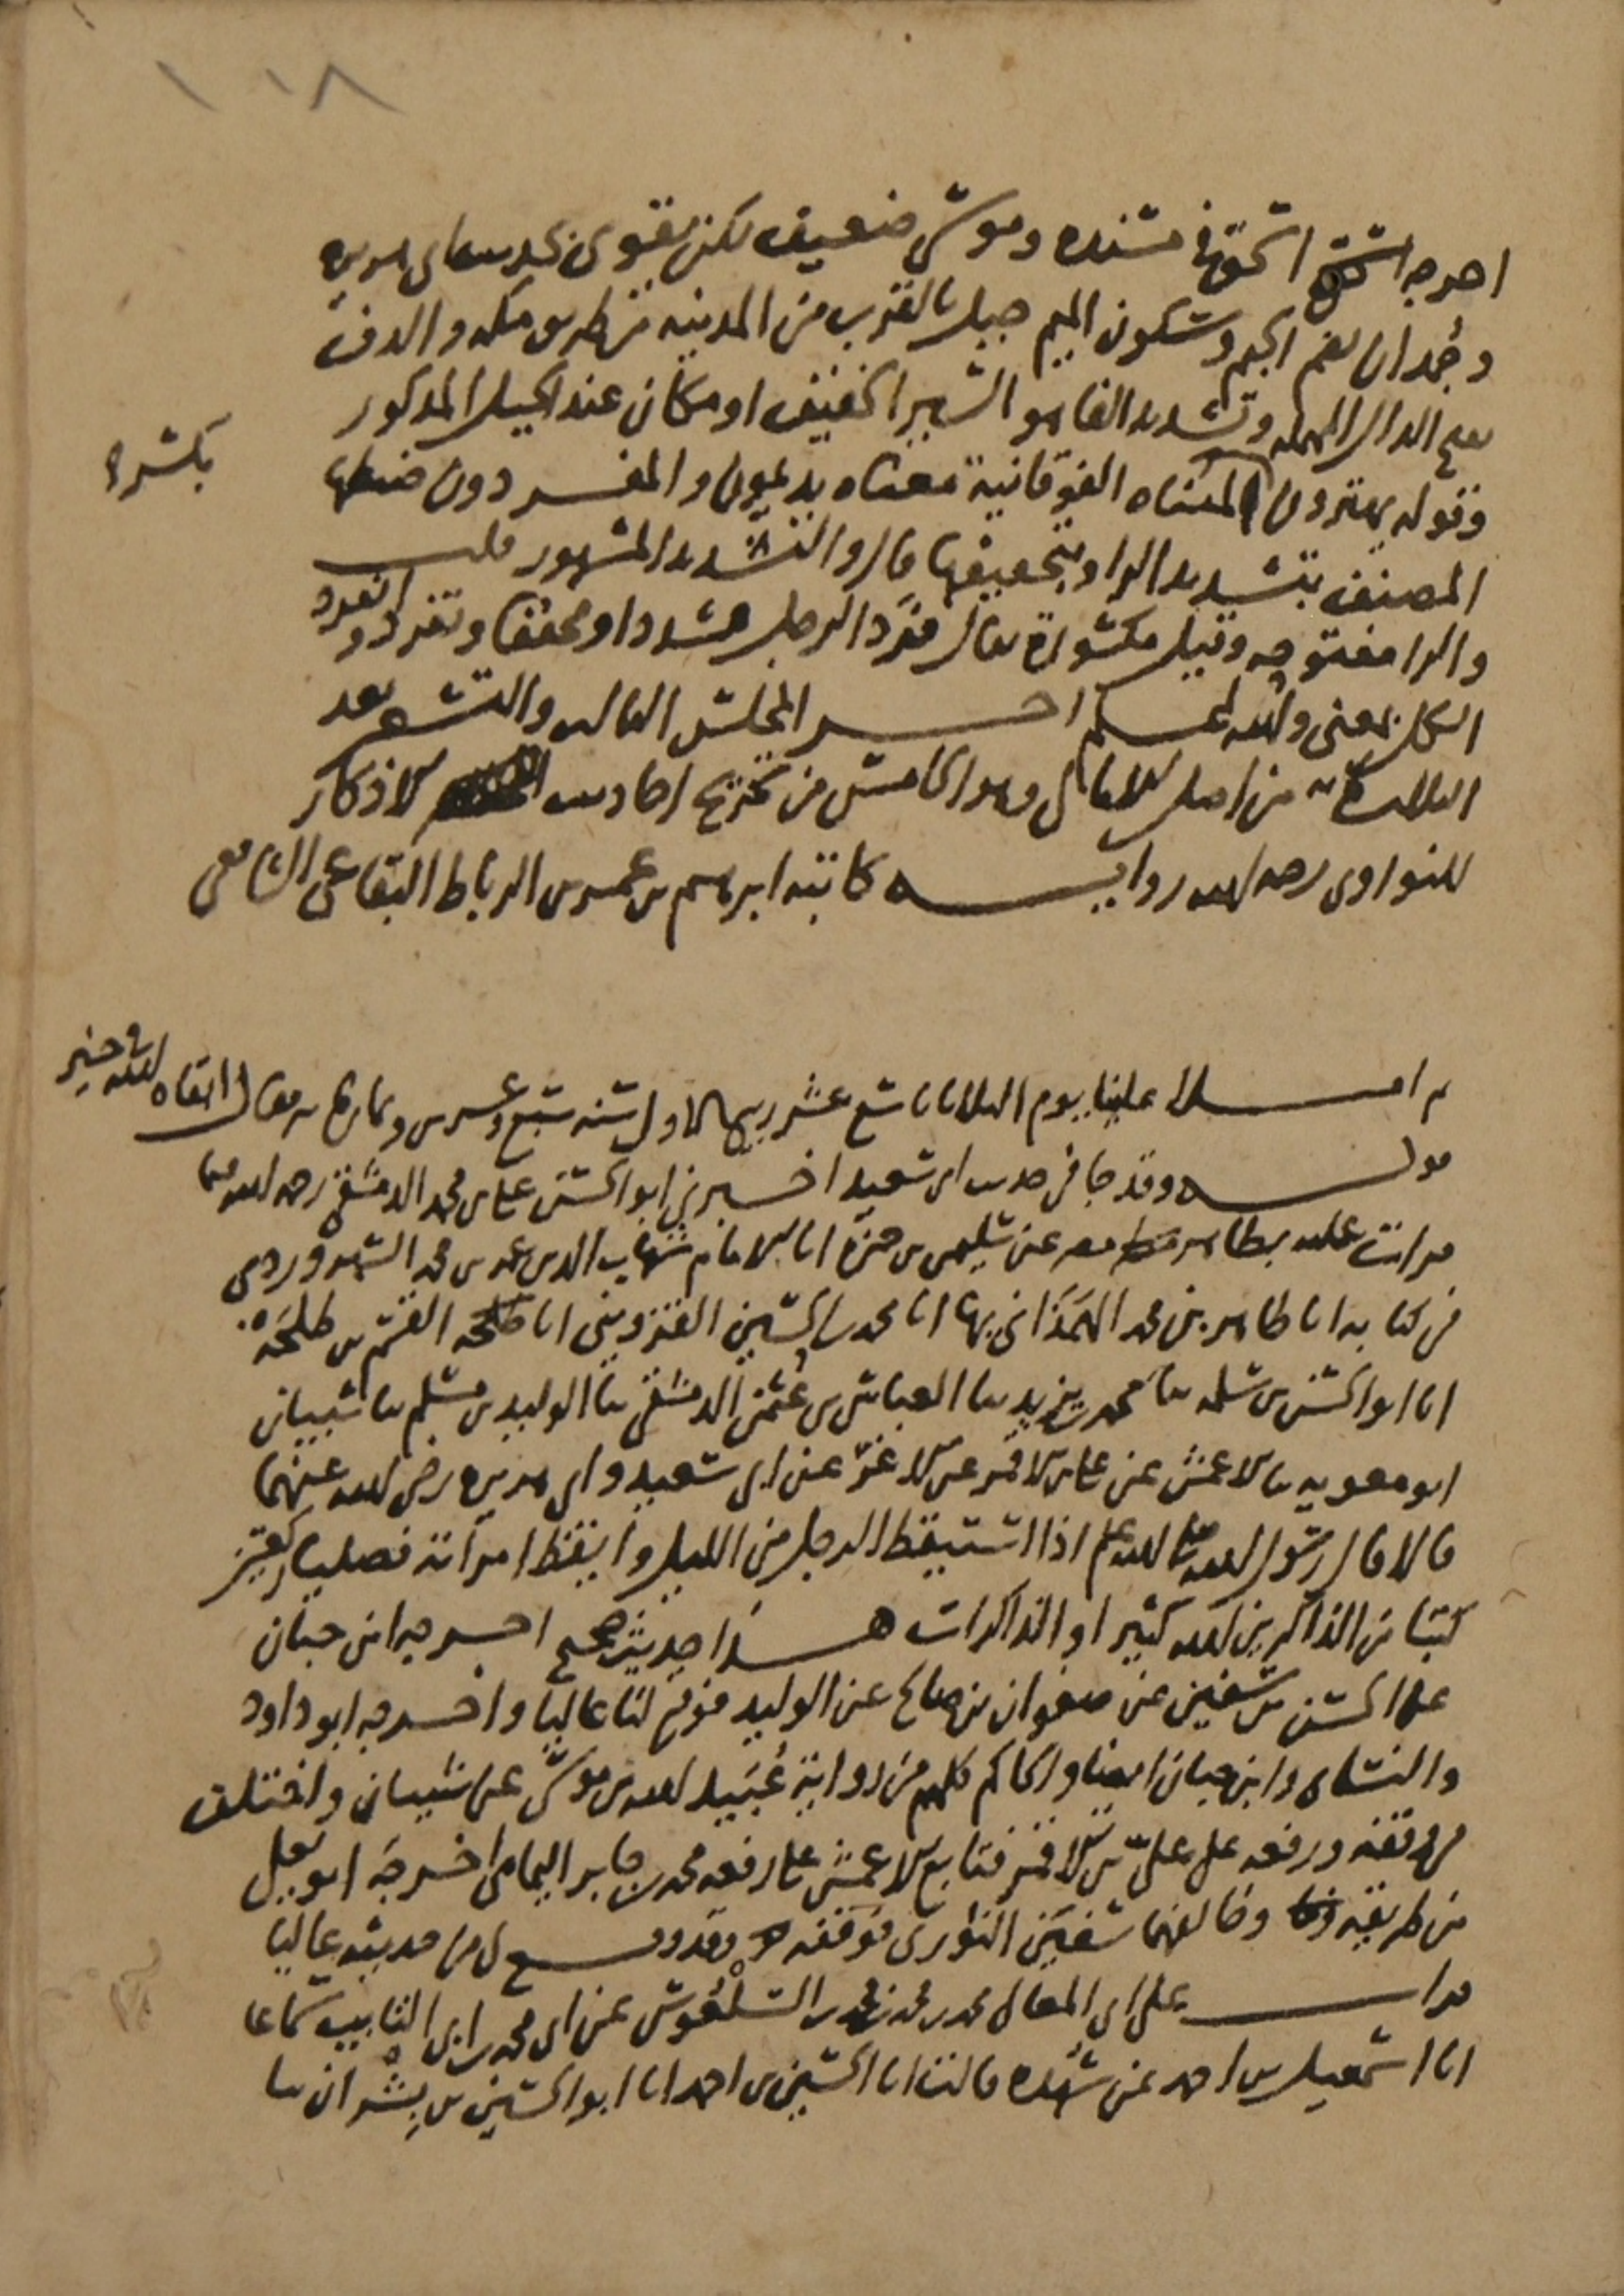 ١٠٨
اخرجه اسحق في مسنده وموسى ضعيف لكن يقوى بحديث ابي هريرة
وجُمدان بضم الجيم وسكون الميم جبل بالقرب من المدينة من طريق مكة والدف
بفتح الدال المهملة وتشديد الفا هو السير الخفيف او مكان عند الجبل المذكور
وقوله يهترون بالمثناه الفوقانية معناه يديمون والمفردون ضبطها
بكسر
المصنف بتشديد الرا وبتخفيفها قال والتشديد المشهور قلت
والرا مفتوحه وقيل مكسورة يقال فرَّد الرجل مشددا ومخففا وتفرد وانفرد
الكل بمعنى والله اعلم اخر المجلس الثالث والتسعين بعد
الثلاثمائة من اصل الامالي وهو الخامس من تخريج احاديث الاذكار
للنواوي رحمه الله رواية كاتبه ابرهيم بن عمر بن الرباط البقاعي الشافعي
ثم املا علينا يوم الثلاثا تاسع عشر ربيع الاول سنة سبع وعشرين وثمانمائة فقال ابقاه الله في خير
قوله وقد جا في حديث ابي سعيد اخبرني ابو الحسن علي بن محمد الدمشقي رحمه الله فيما
قرات عليه بظاهر مصر عن سليمن بن حمزة انا الامام شهاب الدين عمر بن محمد السهروردي
في كتابه انا طاهر بن محمد الهمَذاني بها انا محمد بن الحسين القزويني انا القسم بن طلحَة
انا ابو الحسن بن سلمه ثنا محمد بن يزيد ثنا العباس بن عُثمن الدمشقي ثنا الوليد بن مسلم ثنا شيبان
ابو معويه ثنا الاعمش عن علي بن الاقمر عن الاغرّ عن ابي سعيد وابي هريرة رضي الله عنهما
قالا قال رسول الله صلى الله عليه وسلم اذا استيقظ الرجل من الليل وايقظ امراته فصليا ركعتين
كتبا من الذاكرين الله كثيرا والذاكرات هذا حديث صحيح اخرجه ابن حبان
عن الحسن بن سفين عن صفوان بن صالح عن الوليد فوقع لنا عاليا واخرجه ابو داود
والنسائي وابن حبان ايضا والحاكم كلهم من رواية عُبَيد الله بن موسى عن شيبان واختلف
في وقفه ورفعه على علي بن الاقمر فتابع الاعمش على رفعه محمد بن جابر اليمامي اخرجه ابو يعلى
من طريقه وخالفهما سفين الثوري فوقفه وقد وقع لي من حديثه عاليا
قرات على ابي المعالي محمد بن محمد بن محمد السلْعُوس عن ابي محمد بن ابي التايب سماعا
انا اسمعيل بن احمد عن شُهده قالت انا الحسين بن احمد انا ابو الحسين بن بِشْران ثنا